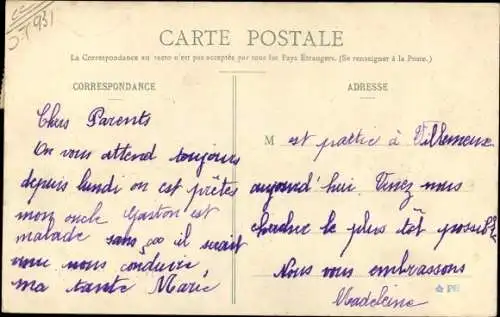 CARTE POSTALE
La Correspondance au recto n'est pas acceptée par tous les Pays Étrangers. (Se renseigner à la Poste.)
CORRESPONDANCE
Chers Parents
On vous attend toujours
depuis lundi on est prêtes
mon oncle Gaston est
malade sans ça il serait
venu nous conduire
ma tante Marie
ADRESSE
M est partie à Villemeux
aujourd'hui. Venez nous
chercher le plus tôt possible
Nous vous embrassons
Madeleine